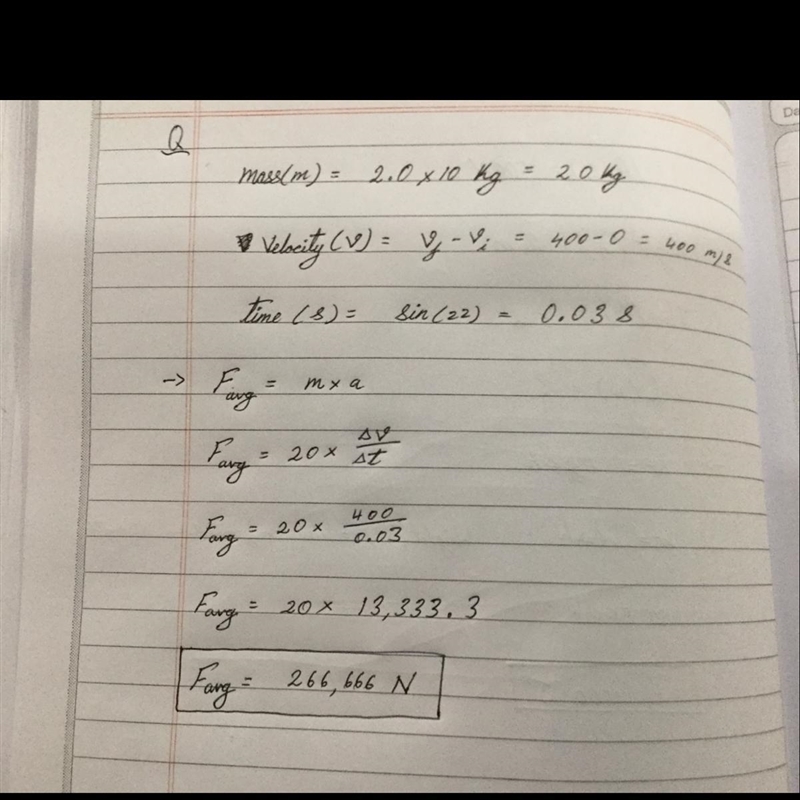 Q
mass(m) = 2.0 × 10 Kg = 20 Kg
Velocity(v) = Vf - Vi = 400 - 0 = 400 m/s
time (s) = sin(22) = 0.03 s
→ Favg = m × a
Favg = 20 × Δv/Δt
Favg = 20 × 400/0.03
Favg = 20 × 13,333.3
Favg = 266,666 N